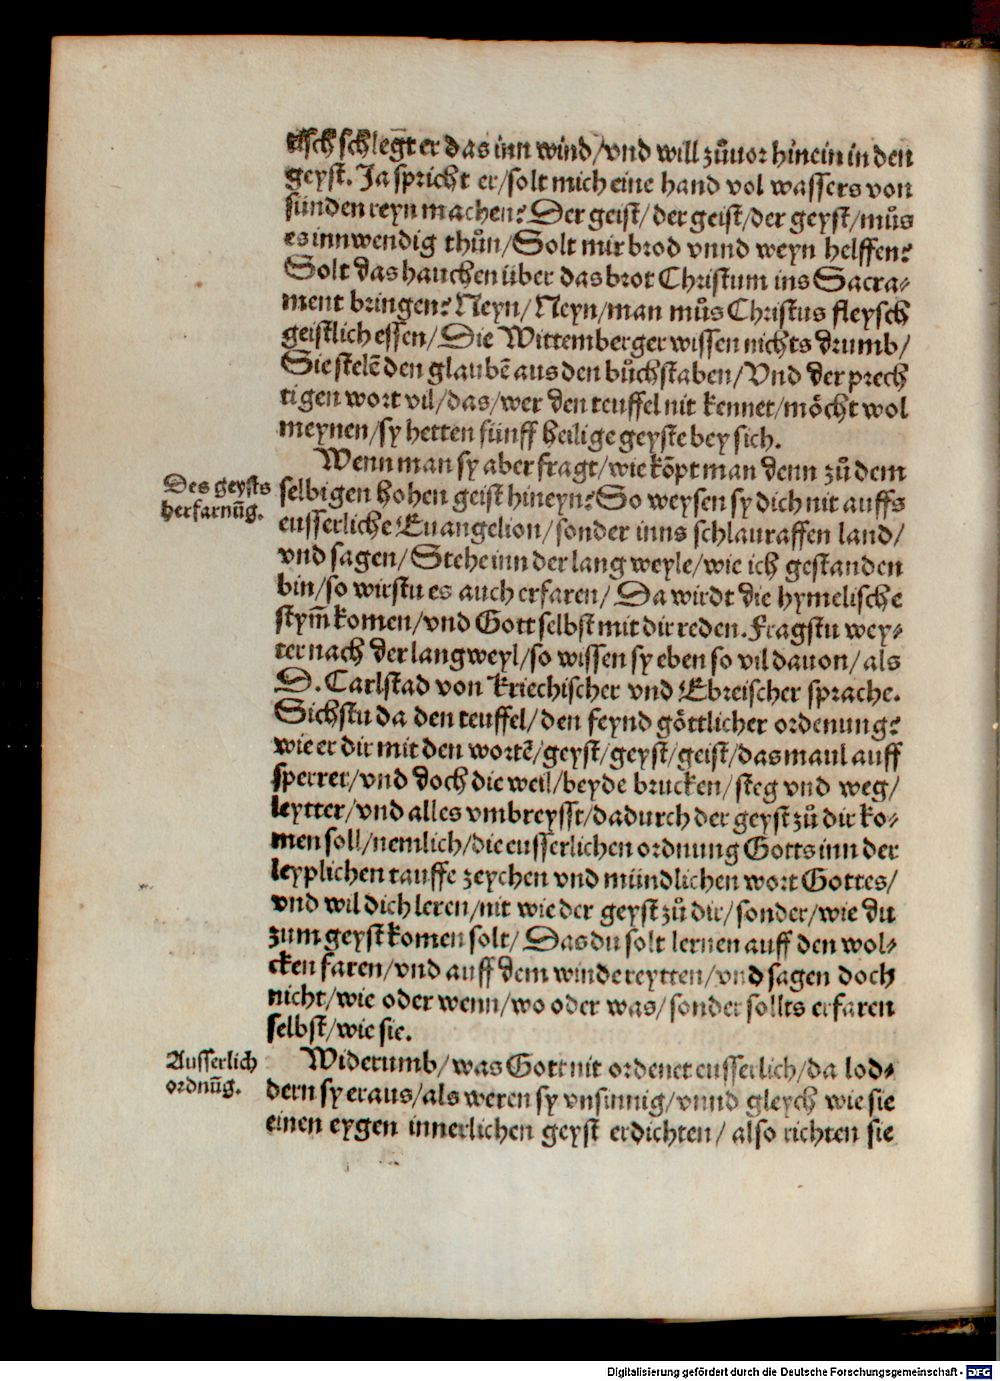 isch schlegt er das inn wind/vnd will zůuor hinein in den
geyst. Ja spricht er/solt mich eine hand vol wassers von
sünden reyn machen? Der geist/der geist/der geyst/můs
es innwendig thůn/Solt mir brod vnnd weyn helffen?
Solt das hauchen über das brot Christum ins Sacra-
ment bringen? Neyn/Neyn/man můs Christus fleysch
geistlich essen/Die Wittemberger wissen nichts drumb/
Sie stelē den glaubē aus den bůchstaben/Vnd der prech
tigen wort vil/das/wer den teuffel nit kennet/möcht wol
meynen/sy hetten fünff heilige geyste bey sich.
Wenn man sy aber fragt/wie kōpt man denn zů dem
Des geysts
herfarnūg.
selbigen hohen geist hineyn? So weysen sy dich nit auffs
eusserliche Euangelion/sonder inns schlauraffen land/
vnd sagen/Stehe inn der lang weyle/wie ich gestanden
bin/so wirstu es auch erfaren/Da wirdt die hymelische
stym̄ komen/vnd Gott selbst mit dir reden. Fragstu wey-
ter nach der langweyl/so wissen sy eben so vil dauon/als
D. Carlstad von Kriechischer vnd Ebreischer sprache.
Sichstu da den teuffel/den feynd göttlicher ordenung?
wie er dir mit den wortē/geyst/geyst/geist/das maul auff
sperret/vnd doch die weil/beyde brucken/steg vnd weg/
leytter/vnd alles vmbreysst/dadurch der geyst zů dir ko-
men soll/nemlich/die eusserlichen ordnung Gotts inn der
leyplichen tauffe zeychen vnd mündlichen wort Gottes/
vnd wil dich leren/nit wie der geyst zů dir/sonder/wie du
zum geyst komen solt/Das du solt lernen auff den wol-
cken faren/vnd auff dem winde reytten/vnd sagen doch
nicht/wie oder wenn/wo oder was/sonder sollts erfaren
selbst/wie sie.
Ausserlich
ordnūg.
Widerumb/was Gott nit ordenet eusserlich/da lod-
dern sy eraus/als weren sy vnsinnig/vnnd gleych wie sie
einen eygen innerlichen geyst erdichten/also richten sie
Digitalisierung gefördert durch die Deutsche Forschungsgemeinschaft - DFG